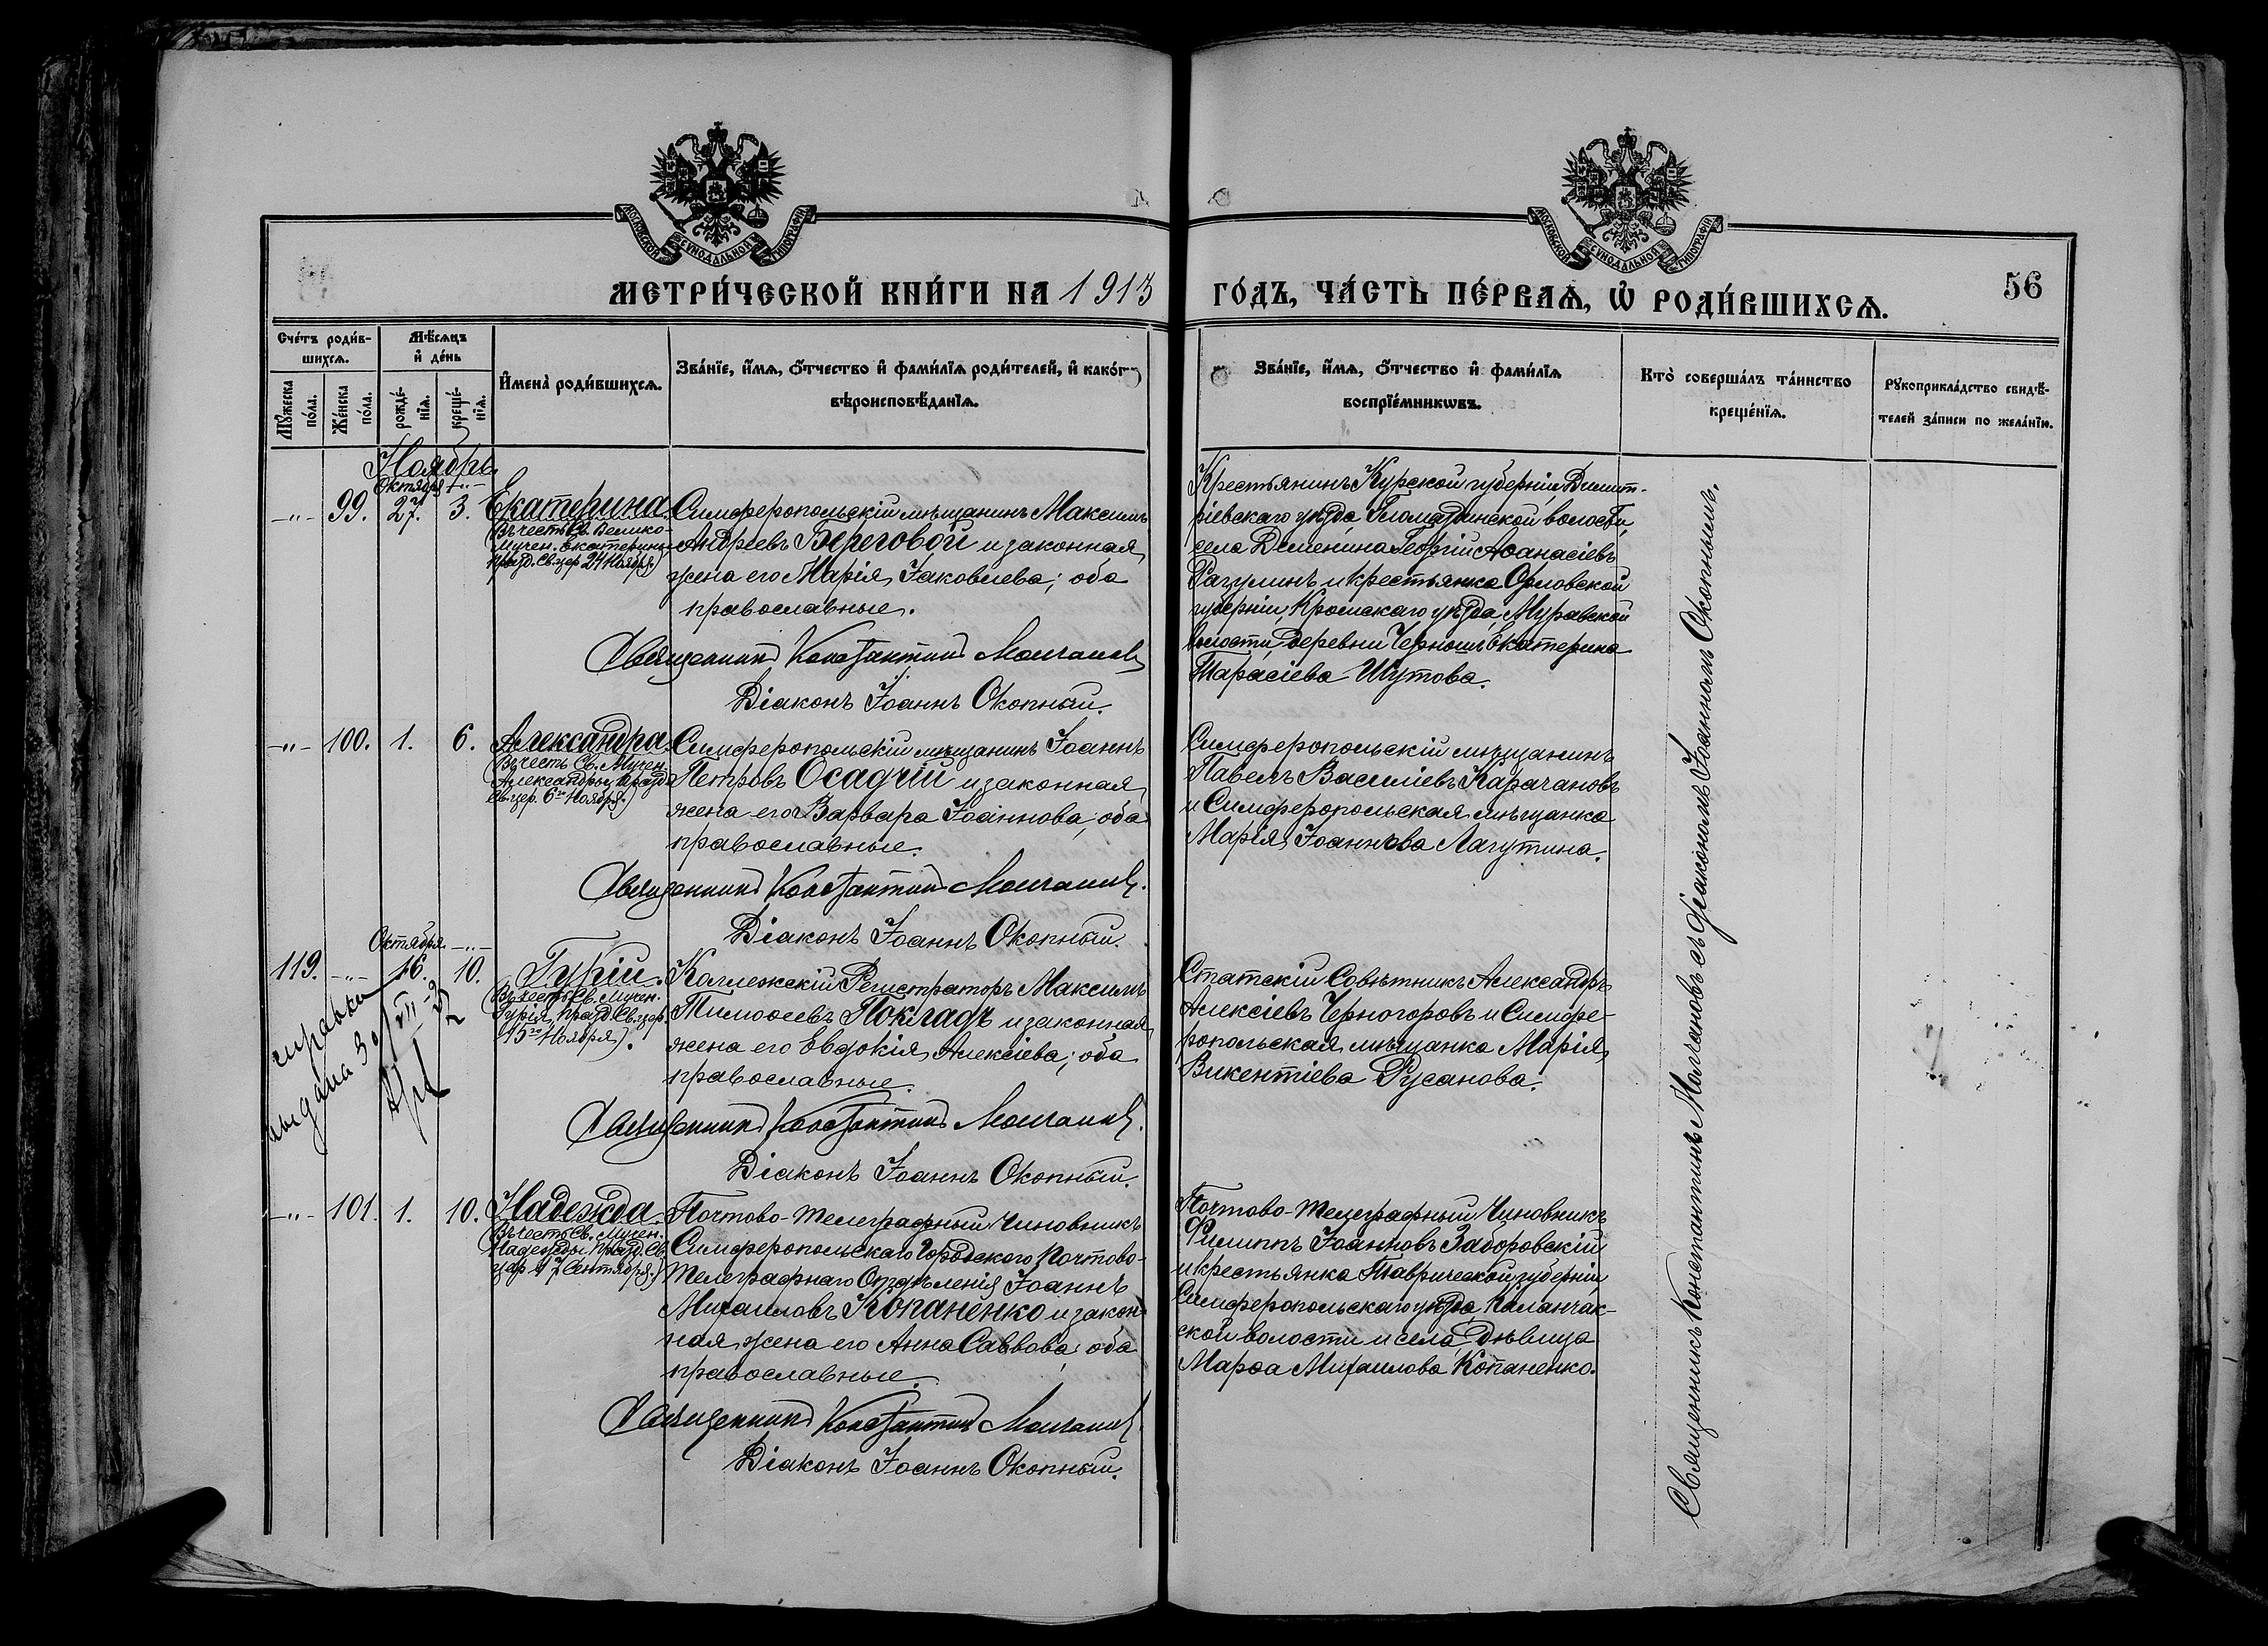 МОСКОВСКОЙ СѴНОДАЛЬНОЙ ТИПОГРАФІИ
МОСКОВСКОЙ СѴНОДАЛЬНОЙ ТИПОГРАФІИ
МЕТРИ́ЧЕСКОЙ КНИ́ГИ НА 1913 ГО́ДЪ, ЧА́СТЬ ПЕ́РВАѦ, Ѡ҆ РОДИ́ВШИХСѦ.
56
Сче́тъ роди́в-
шихсѧ.
Мѣ́сѧцъ
и҆ де́нь
Мꙋ́жеска
по́ла.
Же́нска
по́ла.
рожде́-
нїѧ.
креще́-
нїѧ.
И҆мена̀ роди́вшихсѧ.
Зва́нїе, и҆́мѧ, ѻ҆́тчество и҆ фами́лїѧ роди́телей, и҆ како́гѡ
вѣроисповѣ́данїѧ.
Зва́нїе, и҆́мѧ, ѻ҆́тчество и҆ фами́лїѧ
воспрїе́мникѡвъ.
Кто̀ соверша́лъ та́инство
креще́нїѧ.
Рꙋкоприкла́дство свидѣ́-
телей за́писи по жела́нїю.
Ноябрь
Октября -"-
-"- 99. 27. 3. Екатерина
Въ честь Св. Велико-
мучен. Екатерины
празд. Св. цер. 24 Ноября)
Симферопольскій мѣщанинъ Максимъ
Андреевъ Береговой и законная
жена его Марія Іаковлева; оба
православные.
Священникъ Константинъ Молчановъ
Діаконъ Іоаннъ Окопный.
Крестьянинъ Курской губерніи Дмит-
ріевскаго уѣзда, волости,
села Деменина Георгій Аѳанасіевъ
Разулинъ и крестьянка Орловской
губерніи, Кромскаго уѣзда, Муравской
волости, деревни Екатерина
Тарасіева Шутова.
-"- 100. 1. 6. Александра
Въ честь Св. Мучен.
Александры, празд.
Св. цер. 6го Ноября.)
Симферопольскій мѣщанинъ Іоаннъ
Петровъ Осадчій и законная
жена его Варвара Іоаннова; оба
православные.
Священникъ Константинъ Молчановъ.
Діаконъ Іоаннъ Окопный.
Симферопольскій мѣщанинъ
Павелъ Василіевъ Карачановъ
и Симферопольская мѣщанка
Марія Іоаннова Лагутина.
Октября -"-
119. -"- 16. 10. Гурій.
Въ честь Св. Мучен.
Гурія, празд. Св. цер.
15го Ноября).
справка
выдана 30/VII-
Коллежскій Регистраторъ Максимъ
Тимоѳеевъ Покладъ и законная
жена его Евдокія Алексіева; оба
православные.
Священникъ Константинъ Молчановъ.
Діаконъ Іоаннъ Окопный.
Статскій Совѣтникъ Александръ
Алексіевъ Черногоровъ и Симфе-
ропольская мѣщанка Марія
Викентіева Русанова.
-"- 101. 1. 10. Надежда.
Въ честь Св. Мучен.
Надежды, празд. Св.
цер. 17 Сентября.)
Почтово-телеграфный Чиновникъ
Симферопольскаго Городского Почтово-
Телеграфнаго Отдѣленія Іоаннъ
Михаиловъ Копаненко и закон-
ная жена его Анна Саввова; оба
православные.
Священникъ Константинъ Молчановъ
Діаконъ Іоаннъ Окопный.
Почтово-телеграфный Чиновникъ
Филиппъ Іоанновъ Заборовскій
и крестьянка Таврической губерніи
Симферопольскаго уѣзда Каланчак-
ской волости и села, дѣвица
Марѳа Михаилова Копаненко.
Священникъ Константинъ Молчановъ съ діакономъ Іоанномъ Окопнымъ.